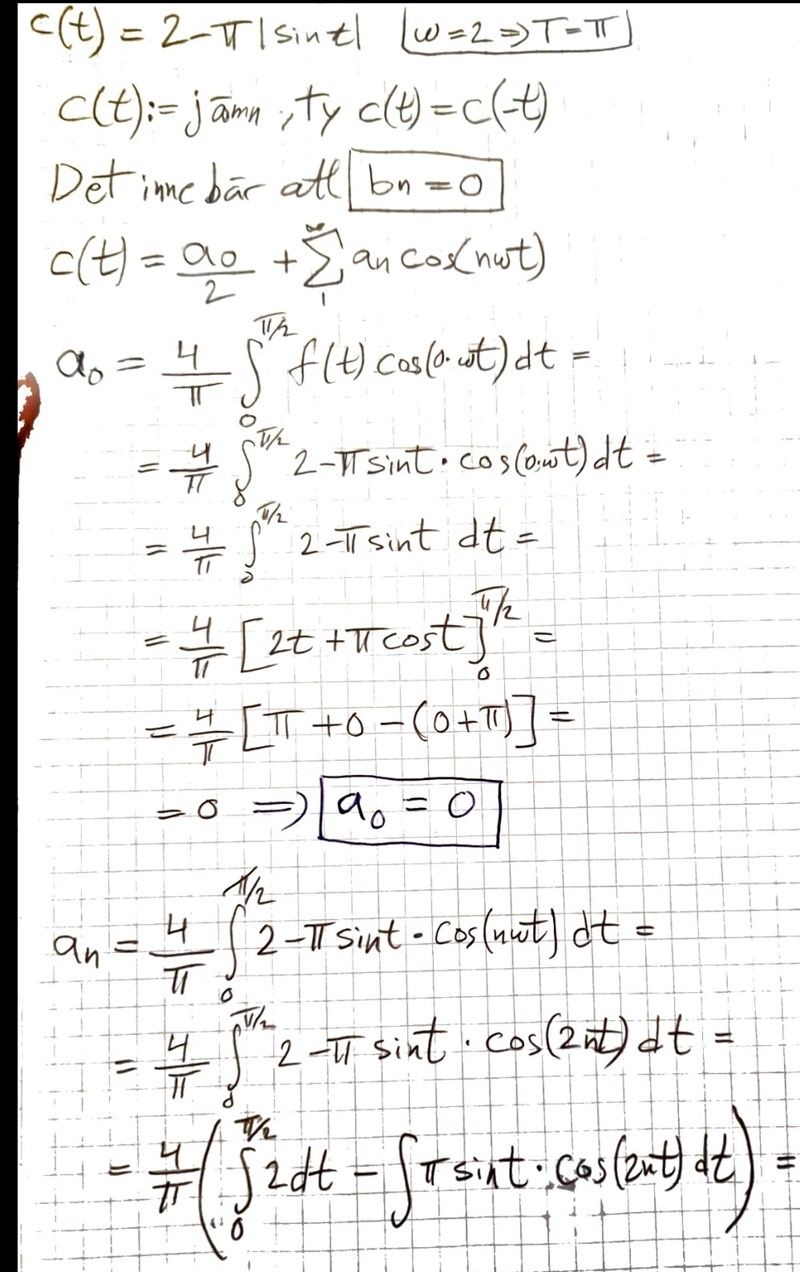 c(t) = 2-π|sint| |ω=2⇒T=π|
c(t):= jāmn , ty c(t)=c(-t)
Det inne bār att bn = 0
c(t) = a0/2 + ∑_1^∞ an cos(nωt)
a0 = 4/π ∫_0^{π/2} f(t) cos(0·ωt) dt =
= 4/π ∫_0^{π/2} 2-π sint · cos(0·ωt) dt =
= 4/π ∫_0^{π/2} 2-π sint dt =
= 4/π [2t + π cost]_0^{π/2} =
= 4/π [π + 0 - (0+π)] =
= 0 ⇒ a0 = 0
an = 4/π ∫_0^{π/2} 2-π sint · cos(nωt) dt =
= 4/π ∫_0^{π/2} 2-π sint · cos(2nt) dt =
= 4/π (∫_0^{π/2} 2dt - ∫ π sint · cos(2nt) dt) =